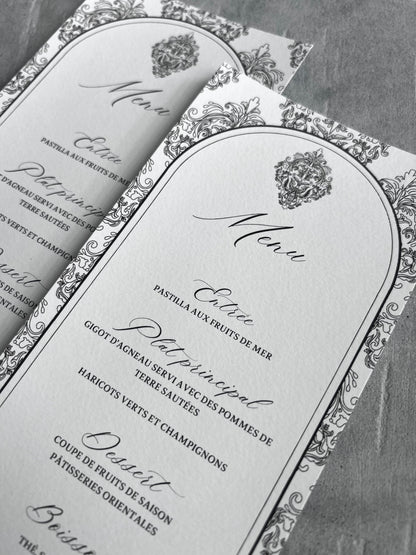 Menu
Entrée
PASTILLA AUX FRUITS DE MER
Plat principal
GIGOT D'AGNEAU SERVI AVEC DES POMMES DE
TERRE SAUTÉES
HARICOTS VERTS ET CHAMPIGNONS
Dessert
S DE SAISON
ORIENTALES
Menu
Entrée
PASTILLA AUX FRUITS DE MER
Plat principal
GIGOT D'AGNEAU SERVI AVEC DES POMMES DE
TERRE SAUTÉES
HARICOTS VERTS ET CHAMPIGNONS
Dessert
COUPE DE FRUITS DE SAISON
PÂTISSERIES ORIENTALES